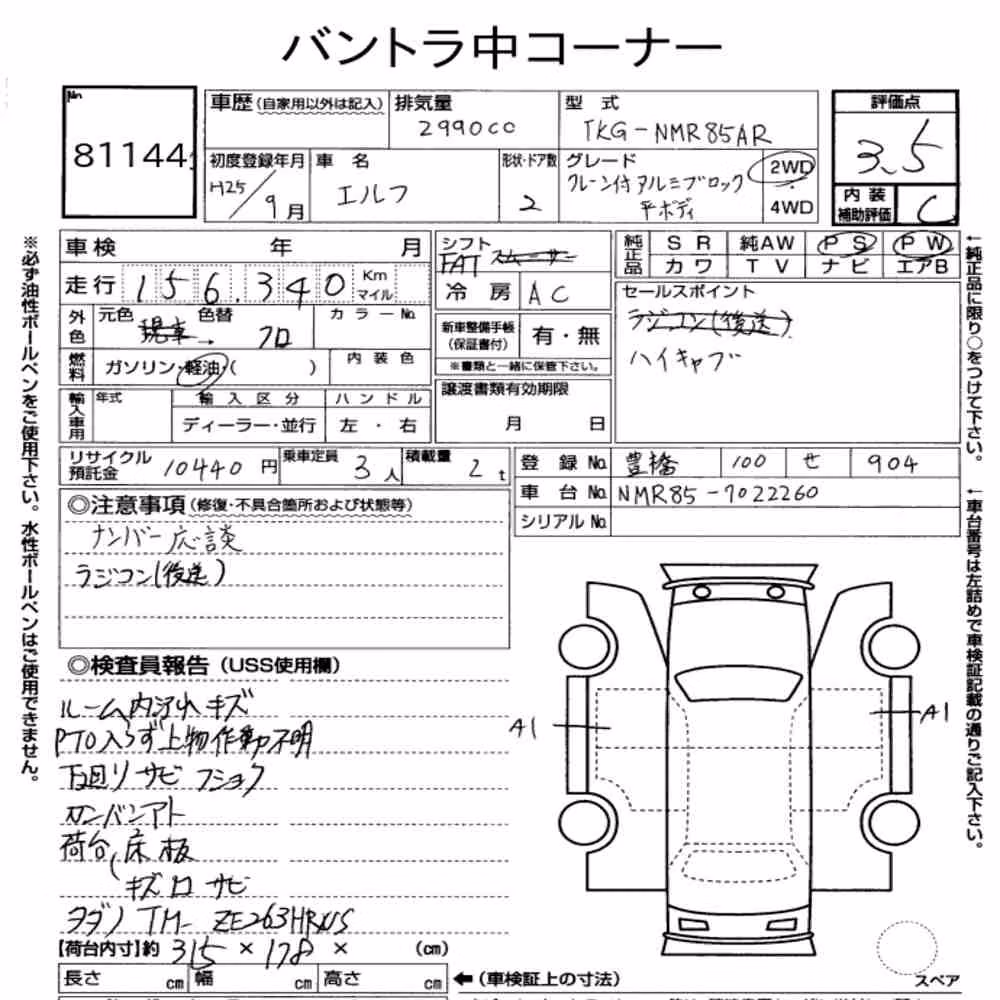 バントラ中コーナー
No
81144
車歴(自家用以外は記入)
排気量
2990cc
型式
TKG-NMR85AR
評価点
3.5
初度登録年月
H25/9月
車名
エルフ
形状・ドア数
2
グレード
クレーン付アルミブロック
平ボディ
2WD
4WD
内装
補助評価
C
※必ず油性ボールペンをご使用下さい。水性ボールペンはご使用できません。
車検 年 月
走行 156.340 Km
マイル
外色
元色 色替
現車→ クロ
カラーNo.
燃料
ガソリン・軽油・( )
内装色
輸入車用
年式
輸入区分
ハンドル
ディーラー・並行
左・右
シフト
FAT スムーサー
冷房 AC
新車整備手帳
(保証書付)
有・無
※書類と一緒に保管下さい。
譲渡書類有効期限
月 日
純正品
SR 純AW PS PW
カワ TV ナビ エアB
セールスポイント
ラジコン(後送)
ハイキャブ
←純正品に限り○をつけて下さい。
リサイクル
預託金
10440円
乗車定員 3人
積載量 2t
登録No. 豊橋 100 せ 904
車台No. NMR85-7022260
シリアルNo.
←車台番号は左詰めで車検証記載の通りご記入下さい。
◎注意事項(修復・不具合箇所および状態等)
ナンバー応談
ラジコン(後送)
◎検査員報告(USS使用欄)
ルーム内汚れキズ
PTO入らず上物作動不明
下回りサビフショク
カンバンアト
荷台(床板
キズ サビ
タダノ TM-ZE263HRS
A1
A1
【荷台内寸】約 315 × 178 × (cm)
長さ cm 幅 cm 高さ cm
←(車検証上の寸法)
スペア